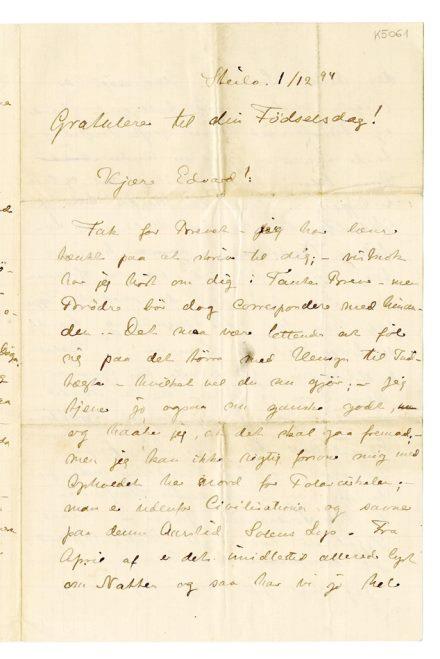 K5061
Steilo. 1/12 94
Gratulerer til din Fødselsdag!
Kjære Edvard!
Tak for Brevet – jeg har længe
tænkt paa at skrive til dig; –
har jeg hørt om dig i Tantes Breve – men
Brødre bør dog correspondere med hinan-
den. – Det maa være lettende at føle
sig paa det tørre med Hensyn til Ind-
tægter – hvilket vel du nu gjør; – jeg
tjener jo ogsaa nu ganske godt,
og haaber jeg, at det skal gaa fremad; –
men jeg kan ikke rigtig forsone mig med
Opholdet her nord for Polarcirkelen; –
man er udenfor Civilisationen og savner
paa denne Aarstid Solens Lys. Fra
April af er det imidlertid allerede lyst
om Natten og saa har vi jo hele